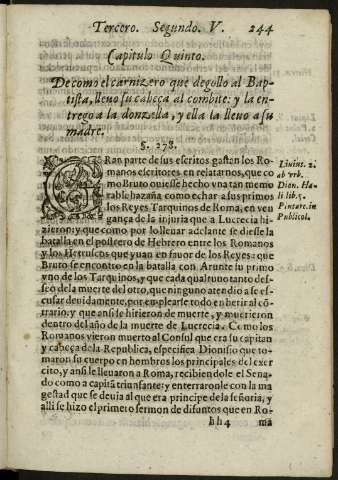 Tercero. Segundo. V. 244
Capitulo Quinto.
De como el carnizero que degollo al Bap-
tista, lleuo su cabeça al combite: y la en-
trego a la donzella, y ella la lleuo a su
madre.
§. 278.
GRan parte de sus escritos gastan los Ro-
manos escritores en relatarnos, que co
mo Bruto ouiesse hecho vna tan memo
rable hazaña como echar a sus primos
los Reyes Tarquinos de Roma, en ven
gança de la injuria que a Lucrecia hi-
zieron: y que como por lo lleuar adelante se diesse la
batalla en el postrero de Hebrero entre los Romanos
y los Hetruscos que yuan en fauor de los Reyes: que
Bruto se encontro en la batalla con Arunte su primo
vno de los Tarquinos, y que cada qual tuuo tanto des-
seo de la muerte del otro, que ninguno atendio a se es-
cusar deuidamente, por emplearse todo en herir al cō-
trario: y que ansi se hirieron de muerte, y murieron
dentro del año de la muerte de Lucrecia. Como los
Romanos vieron muerto al Consul que era su capitan
y cabeça de la Republica, especifica Dionisio que to-
maron su cuerpo en hombros los principales del exer
cito, y ansi le lleuaron a Roma, recibiendole el Sena-
do como a capitā triunfante: y enterraronle con la ma
gestad que se deuia al que era principe de la señoria, y
alli se hizo el primero sermon de difuntos que en Ro-
hh4 ma
Liuius. 2.
ab vrb.
Dion. Ha
li lib. 5.
Plutarc. in
Publicol.